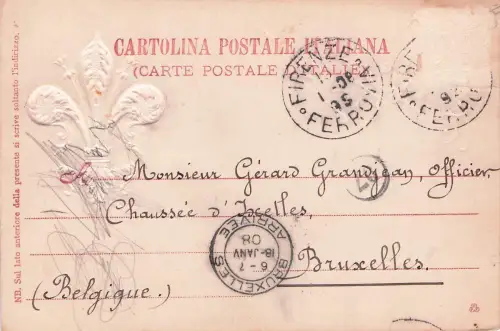 CARTOLINA POSTALE ITALIANA
(CARTE POSTALE D'ITALIE)
FIRENZE
FERROVIA
FERROVIA
NB. Sul lato anteriore della presente si scrive soltanto l'indirizzo.
À Monsieur Gérard Grandjean, Officier.
Chaussée d'Ixelles,
Bruxelles.
(Belgique.)
BRUXELLES
6-7
18-JANV
08
ARRIVEE